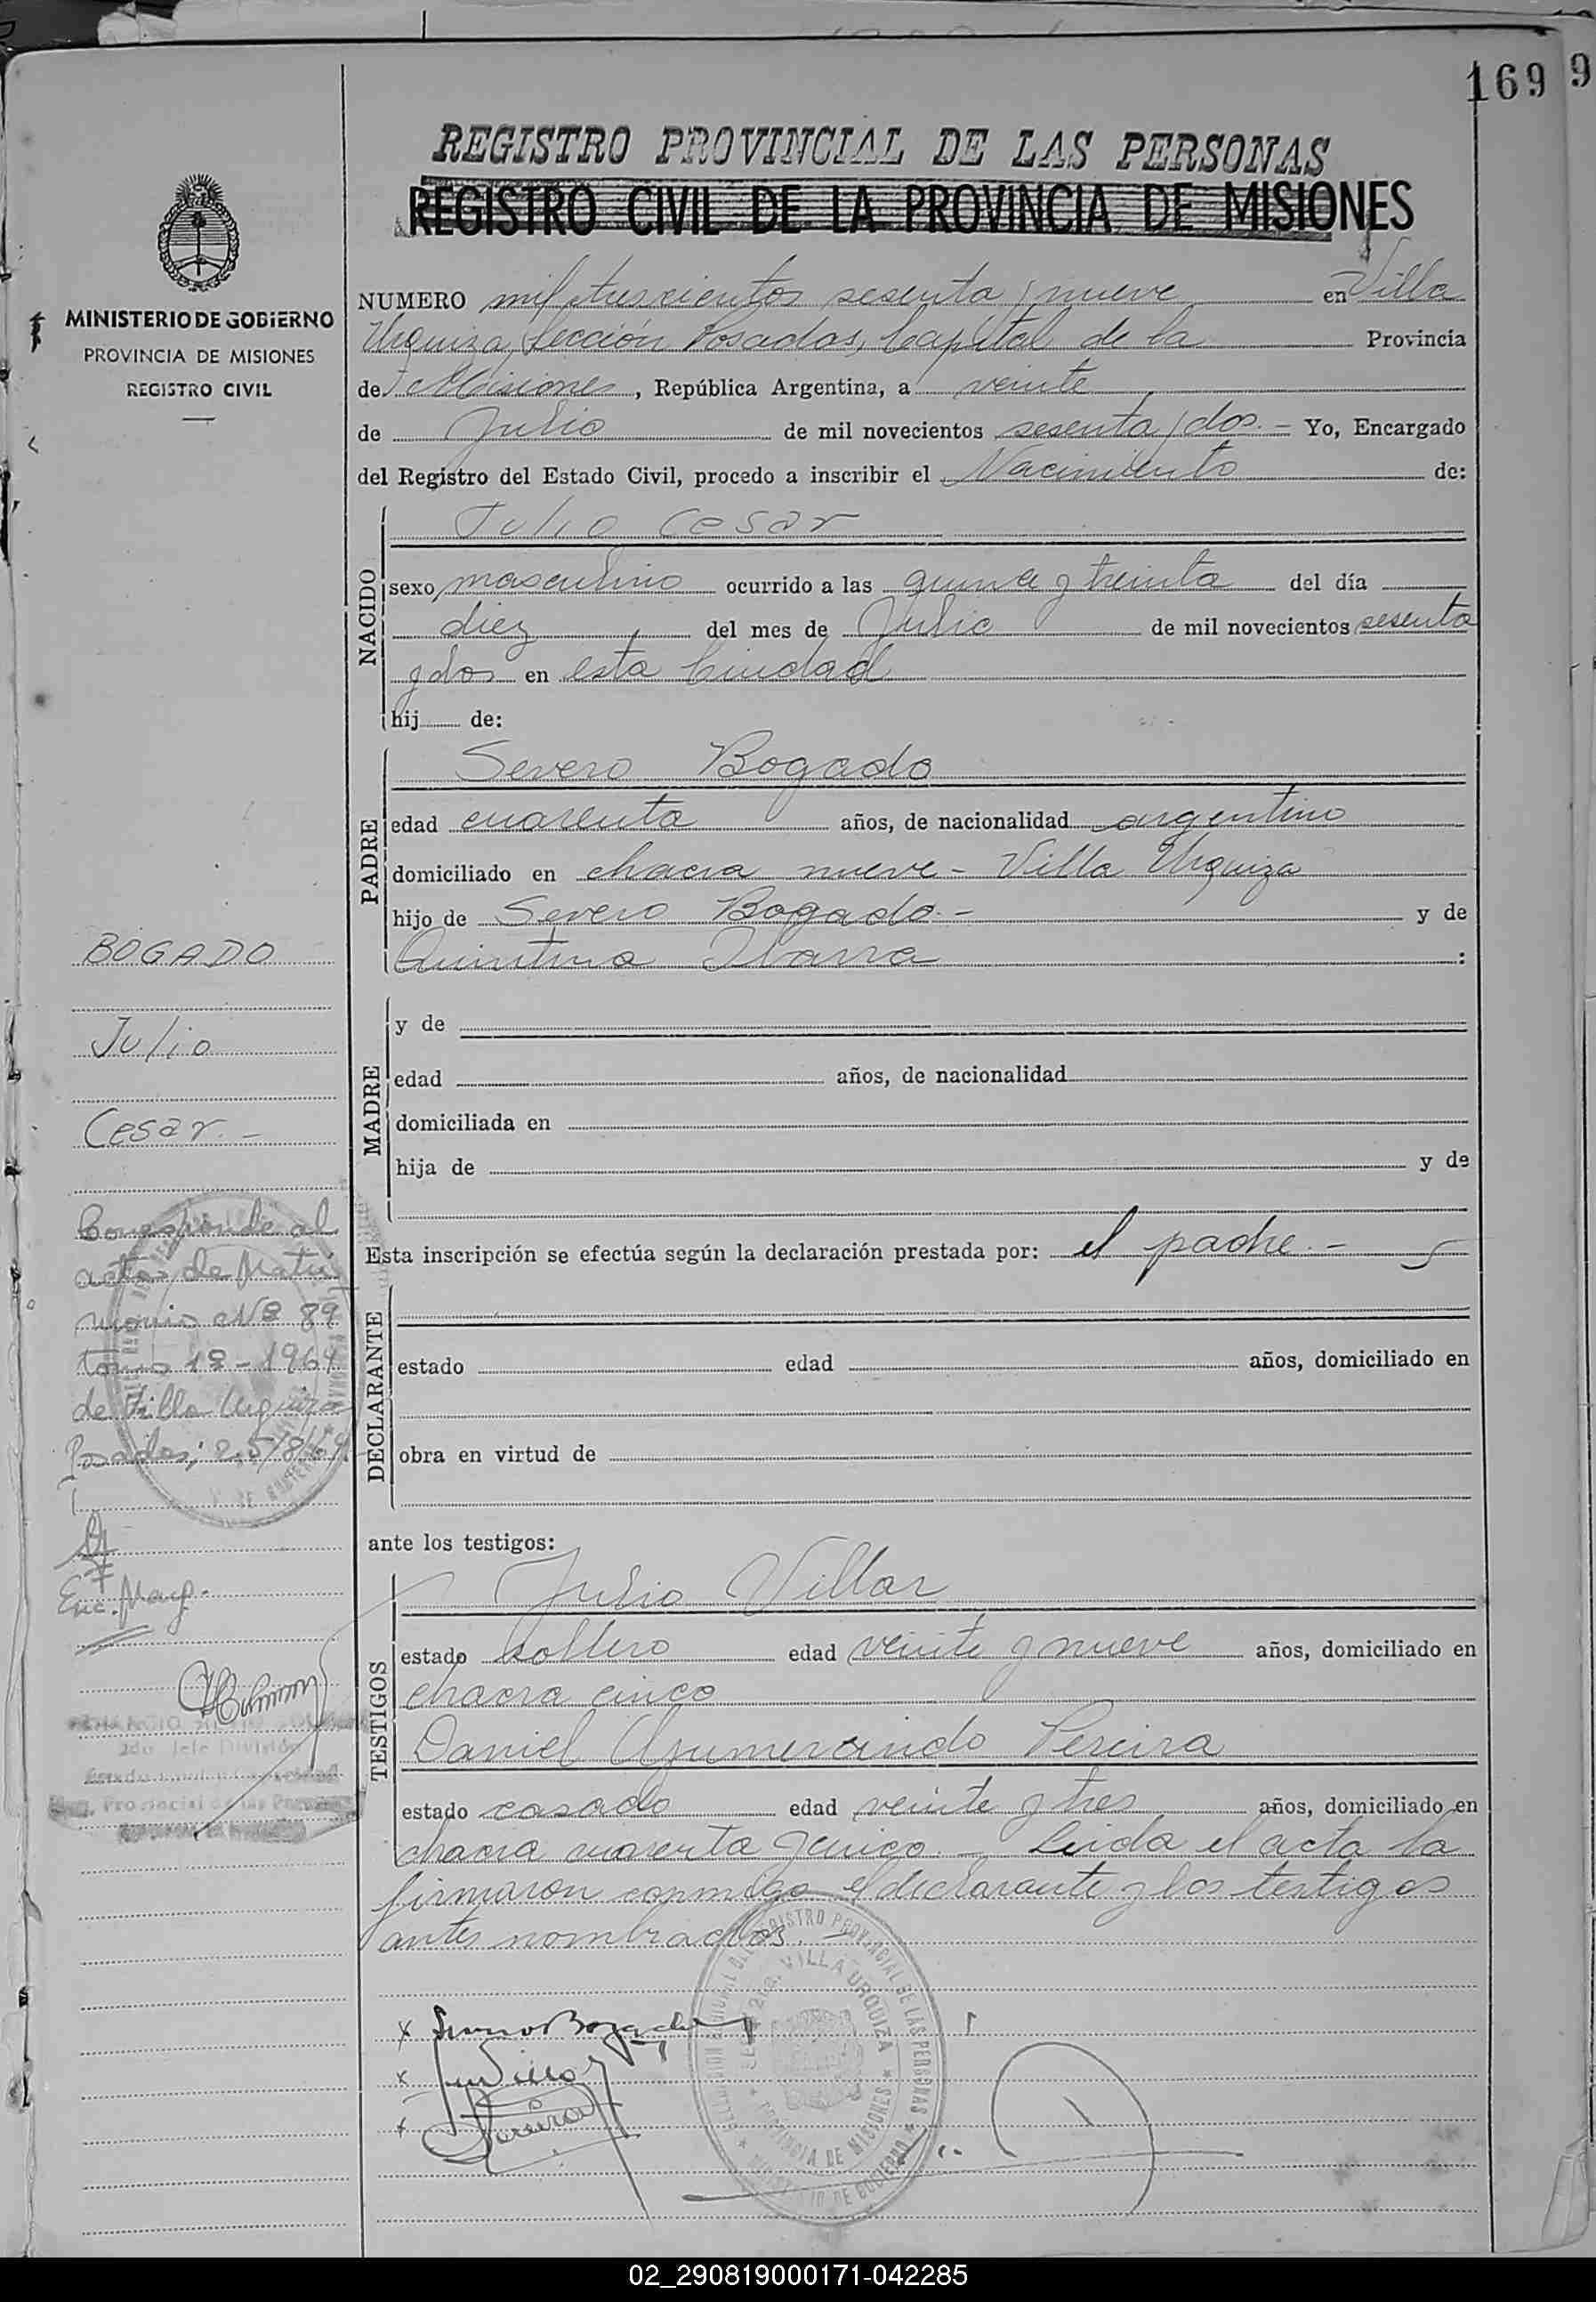 169 9
REGISTRO PROVINCIAL DE LAS PERSONAS
REGISTRO CIVIL DE LA PROVINCIA DE MISIONES
MINISTERIO DE GOBIERNO
PROVINCIA DE MISIONES
REGISTRO CIVIL
NUMERO mil trescientos sesenta y nueve en Villa
Urquiza, Sección Posadas, Capital de la Provincia
de Misiones, República Argentina, a veinte
de Julio de mil novecientos sesenta y dos.- Yo, Encargado
del Registro del Estado Civil, procedo a inscribir el Nacimiento de:
NACIDO
Julio Cesar
sexo masculino ocurrido a las quince y treinta del día
diez del mes de Julio de mil novecientos sesenta
y dos en esta Ciudad
hij de:
PADRE
Severo Bogado
edad cuarenta años, de nacionalidad argentino
domiciliado en chacra nueve - Villa Urquiza
hijo de Severo Bogado.- y de
Quintina Ibarra :
MADRE
y de
edad años, de nacionalidad
domiciliada en
hija de y de
Esta inscripción se efectúa según la declaración prestada por: el padre.-
DECLARANTE
estado edad años, domiciliado en
obra en virtud de
ante los testigos:
TESTIGOS
Julio Villar
estado soltero edad veinte y nueve años, domiciliado en
chacra cinco
Daniel Gumercindo Pereira
estado casado edad veinte y tres años, domiciliado en
chacra cuarenta y cinco.- Leida el acta la
firmaron conmigo el declarante y los testigos
antes nombrados.-
x Severo Bogado
x
x Pereira
REGISTRO PROVINCIAL DE LAS PERSONAS
VILLA URQUIZA
PROVINCIA DE MISIONES
MINISTERIO DE GOBIERNO
BOGADO
Julio
Cesar.-
Corresponde al
acta de Matri
monio Nº 89
tomo 1º - 1964
de Villa Urquiza
Posadas; 25/8/
Enc. Marg.
2do Jefe División
Provincial de las Personas
02_290819000171-042285